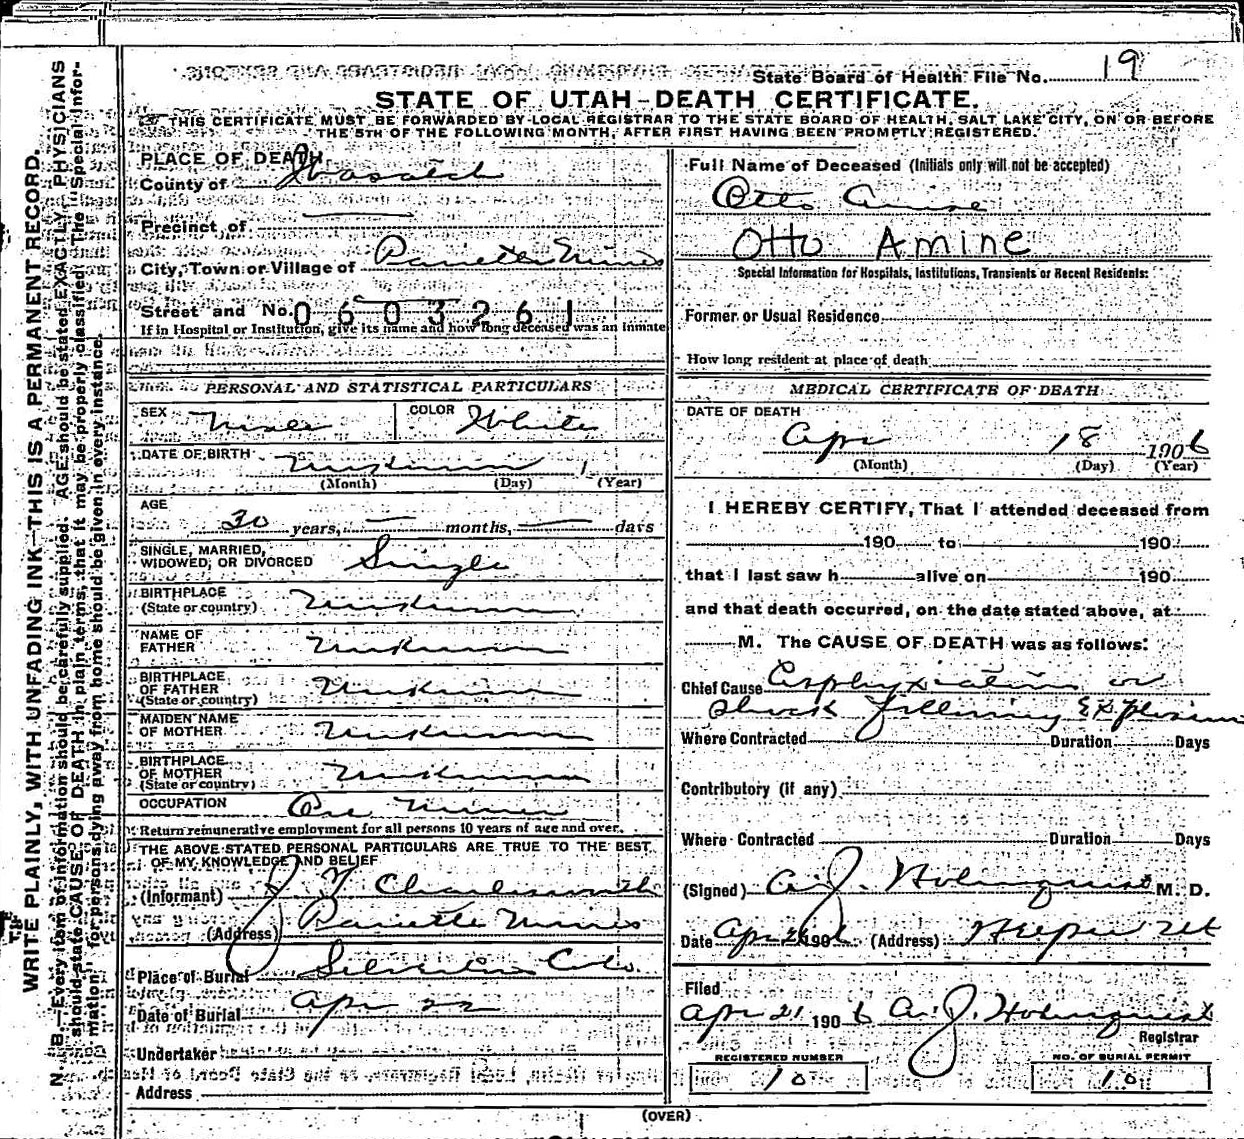 State Board of Health File No. 19
STATE OF UTAH-DEATH CERTIFICATE.
THIS CERTIFICATE MUST BE FORWARDED BY LOCAL REGISTRAR TO THE STATE BOARD OF HEALTH, SALT LAKE CITY, ON OR BEFORE
THE 5TH OF THE FOLLOWING MONTH, AFTER FIRST HAVING BEEN PROMPTLY REGISTERED.
WRITE PLAINLY, WITH UNFADING INK—THIS IS A PERMANENT RECORD.
N. B.—Every item of information should be carefully supplied. AGE should be stated EXACTLY. PHYSICIANS
should state CAUSE OF DEATH in plain terms, that it may be properly classified. The "Special Infor-
mation" for persons dying away from home should be given in every instance.
PLACE OF DEATH
County of Wasatch
Precinct of
City, Town or Village of Pariette Mines
Street and No. 0603261
If in Hospital or Institution, give its name and how long deceased was an inmate
PERSONAL AND STATISTICAL PARTICULARS
SEX Male COLOR White
DATE OF BIRTH Unknown 1
(Month) (Day) (Year)
AGE
30 years, — months, — days
SINGLE, MARRIED,
WIDOWED, OR DIVORCED Single
BIRTHPLACE
(State or country) Unknown
NAME OF
FATHER Unknown
BIRTHPLACE
OF FATHER
(State or country) Unknown
MAIDEN NAME
OF MOTHER Unknown
BIRTHPLACE
OF MOTHER
(State or country) Unknown
OCCUPATION Ore Miner
Return remunerative employment for all persons 10 years of age and over.
THE ABOVE STATED PERSONAL PARTICULARS ARE TRUE TO THE BEST
OF MY KNOWLEDGE AND BELIEF
(Informant) J Y Charlesworth
(Address) Pariette Mines
Place of Burial Silverton Colo.
Date of Burial Apr 22
Undertaker
Address
Full Name of Deceased (Initials only will not be accepted)
Otto Amine
Otto Amine
Special Information for Hospitals, Institutions, Transients or Recent Residents:
Former or Usual Residence
How long resident at place of death
MEDICAL CERTIFICATE OF DEATH
DATE OF DEATH
Apr 18 1906
(Month) (Day) (Year)
I HEREBY CERTIFY, That I attended deceased from
190 to 190
that I last saw h alive on 190
and that death occurred, on the date stated above, at
M. The CAUSE OF DEATH was as follows:
Chief Cause Asphyxiation or
Shock following Explosion
Where Contracted Duration Days
Contributory (if any)
Where Contracted Duration Days
(Signed) A. J. Holmquist M. D.
Date Apr 21 1906 (Address) Heber Ut
Filed
Apr 21 1906 A. J. Holmquist
Registrar
REGISTERED NUMBER
10
NO. OF BURIAL PERMIT
10
(OVER)